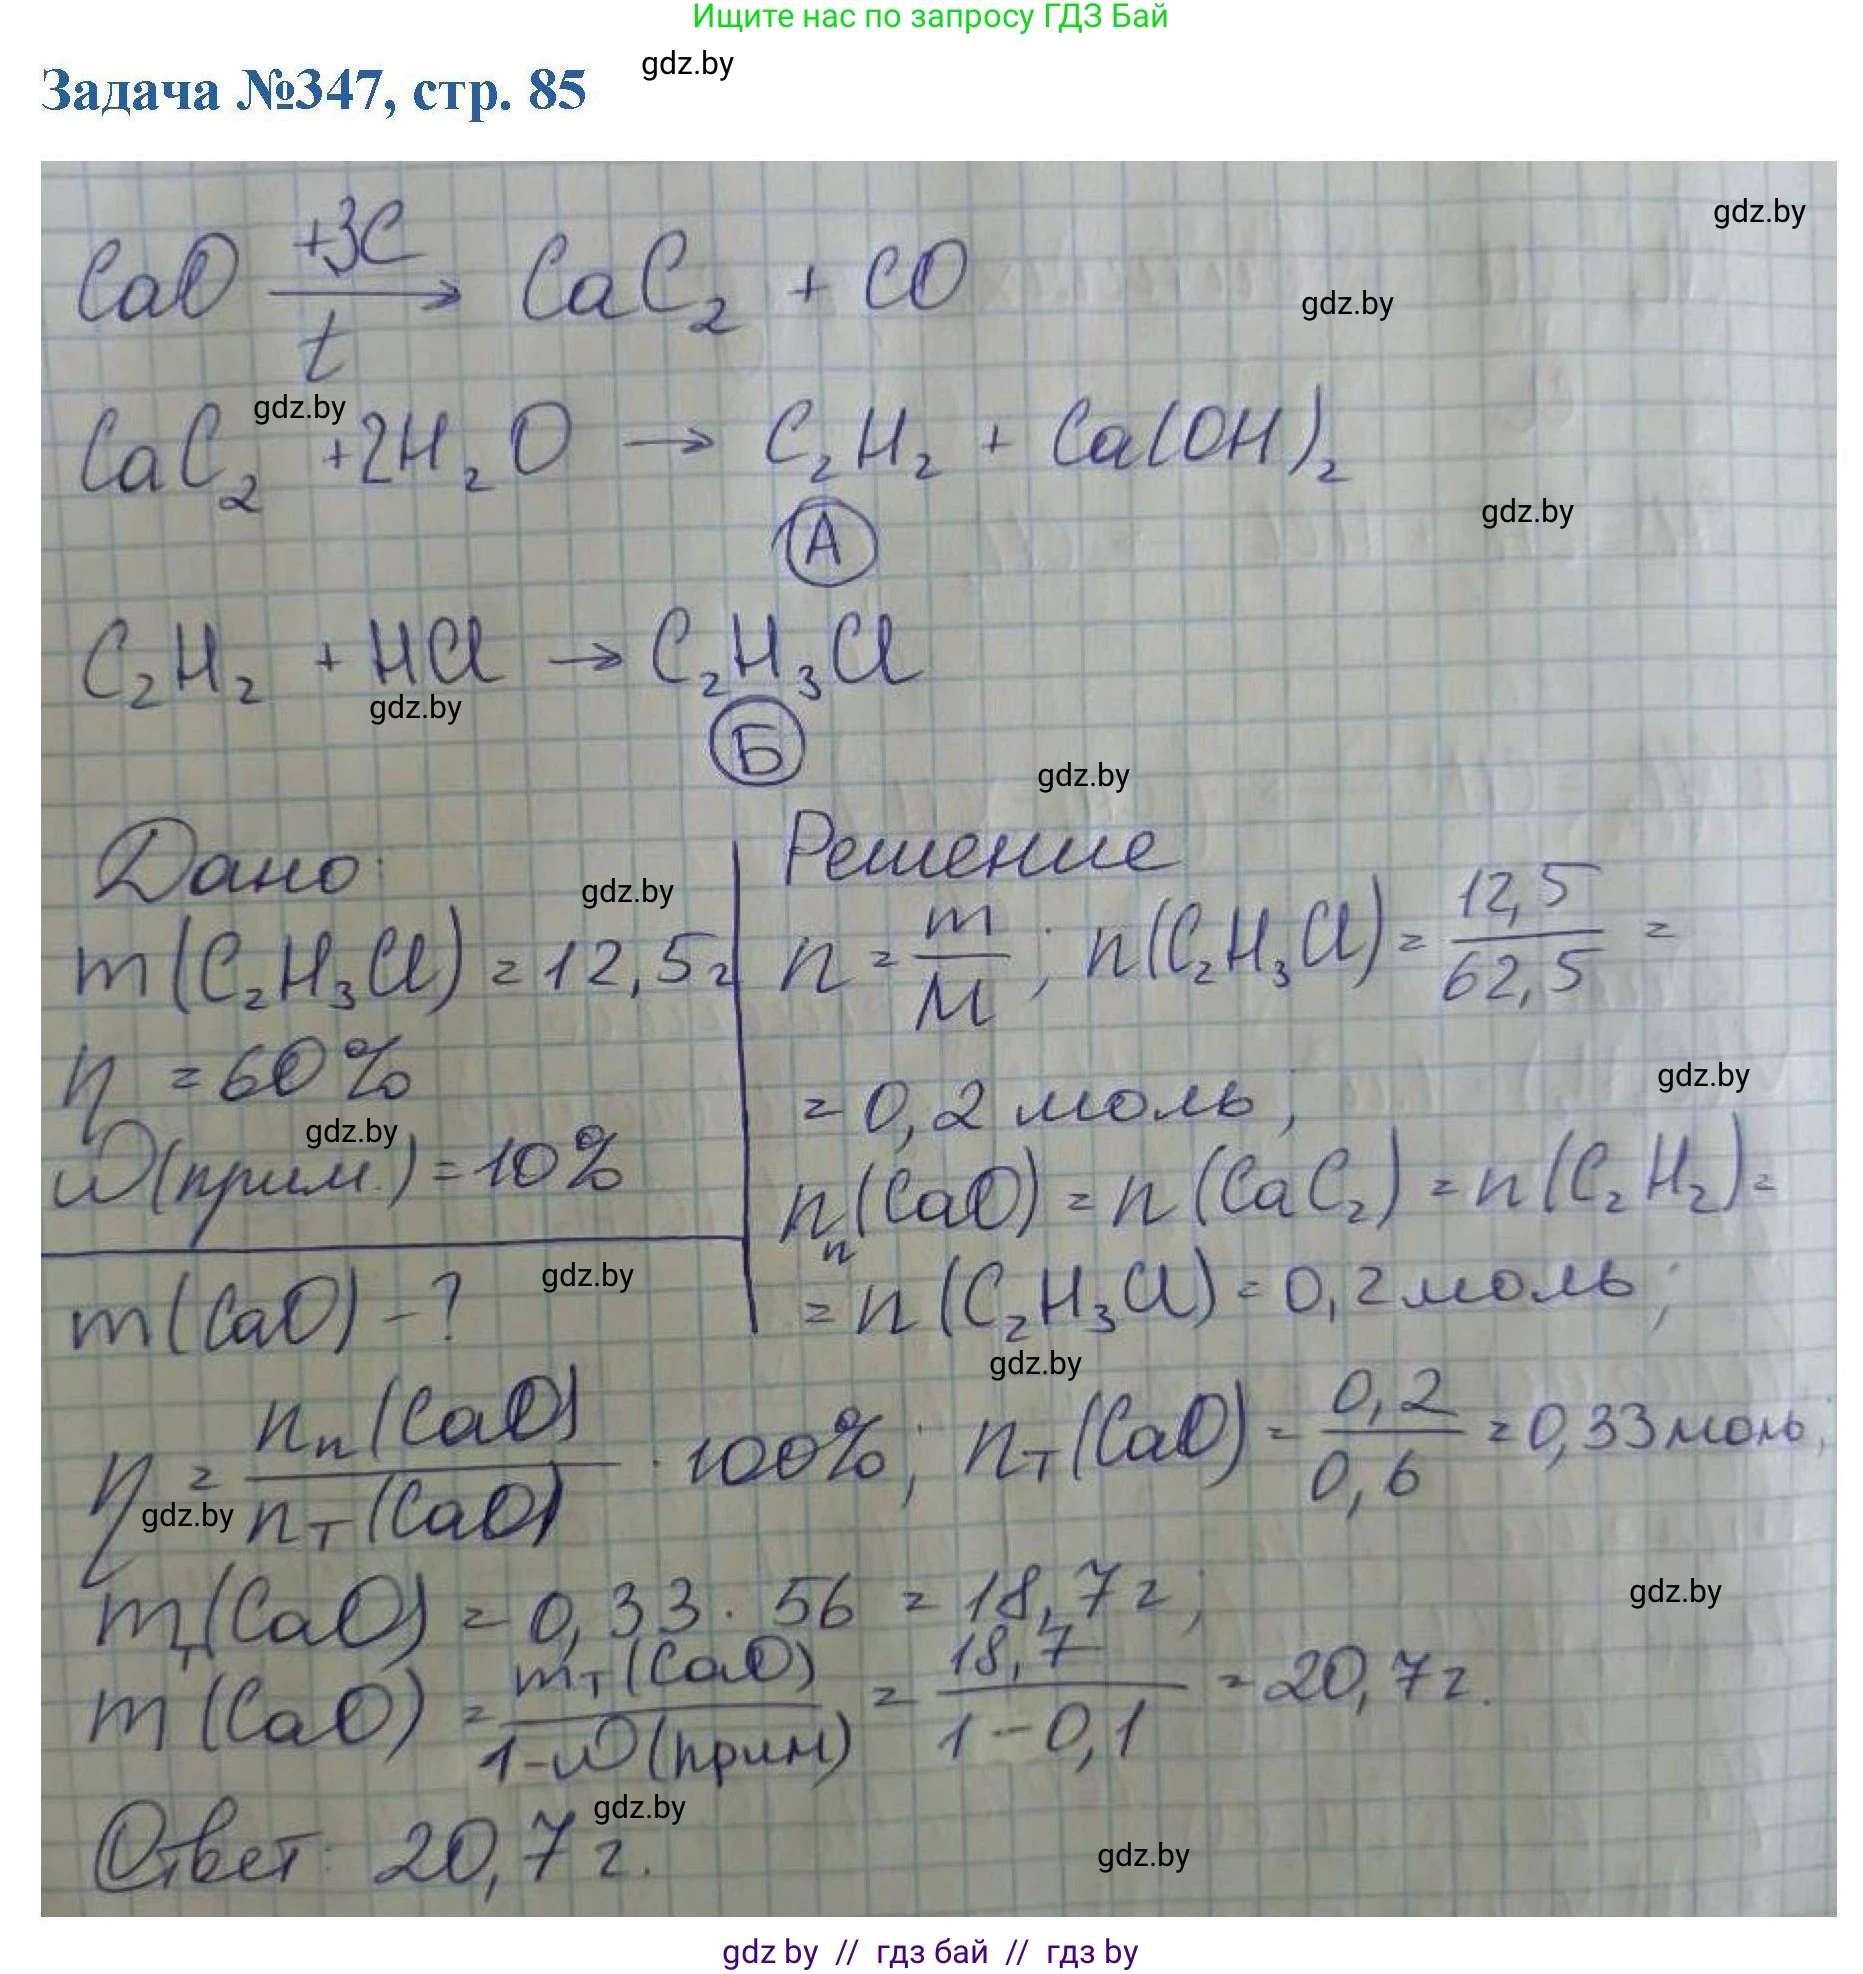 Ищите нас по запросу ГДЗ Бай
gdz.by
Задача №347, стр. 85
gdz.by
CaO +3C/t → CaC₂ + CO
gdz.by
gdz.by
CaC₂ + 2H₂O → C₂H₂ + Ca(OH)₂
gdz.by
А
C₂H₂ + HCl → C₂H₃Cl
gdz.by
Б
gdz.by
Дано:
gdz.by
m(C₂H₃Cl) = 12,5 г
η = 60%
gdz.by
ω(прим.) = 10%
gdz.by
m(CaO) - ?
Решение
n = m/M; n(C₂H₃Cl) = 12,5/62,5 =
gdz.by
= 0,2 моль;
nп(CaO) = n(CaC₂) = n(C₂H₂) =
= n(C₂H₃Cl) = 0,2 моль;
gdz.by
η = nп(CaO)/nт(CaO) · 100%; nт(CaO) = 0,2/0,6 = 0,33 моль;
gdz.by
mт(CaO) = 0,33 · 56 = 18,7 г;
gdz.by
m(CaO) = mт(CaO)/1-ω(прим) = 18,7/1-0,1 = 20,7 г.
gdz.by
Ответ: 20,7 г.
gdz.by
gdz by // гдз бай // гдз by